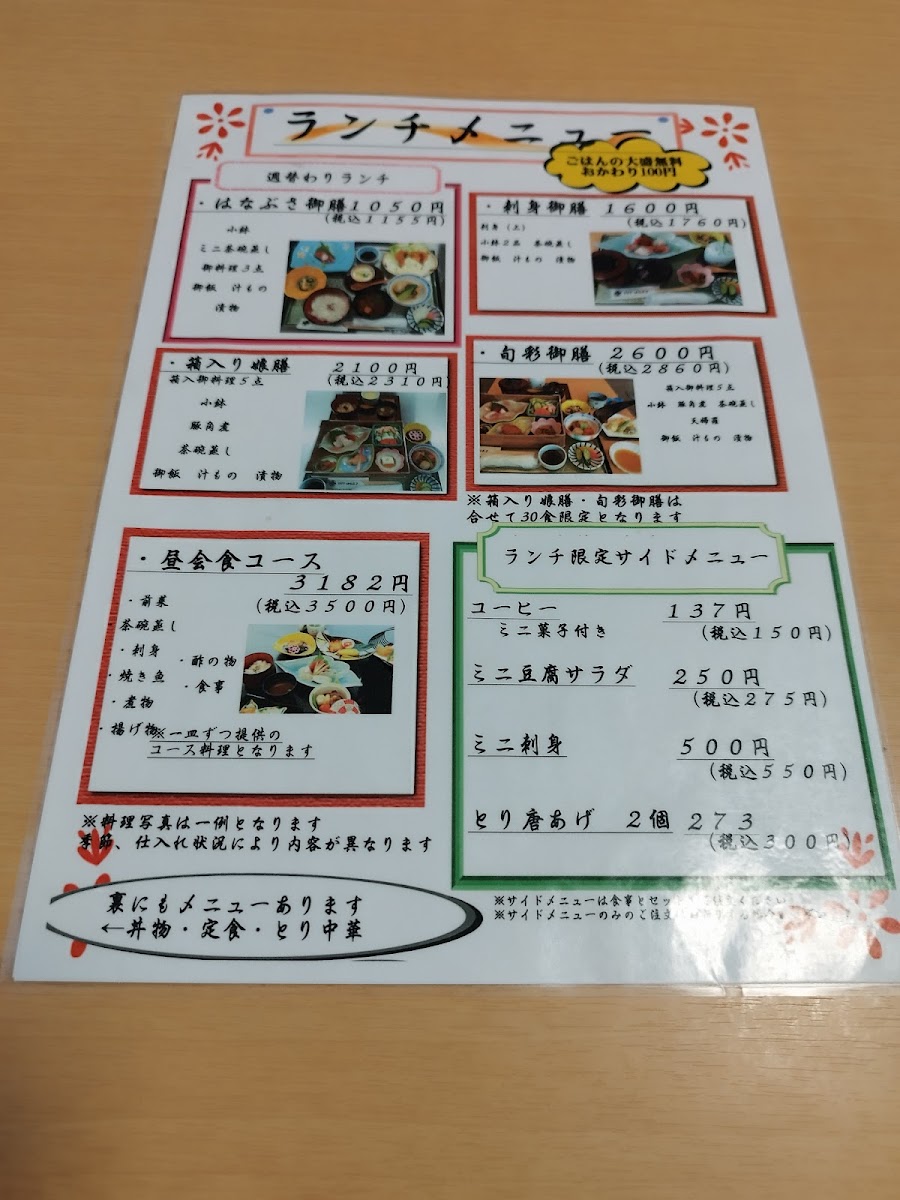 ランチメニュー
ごはんの大盛無料
おかわり100円
週替わりランチ
・はなぶさ御膳1050円
(税込1155円)
小鉢
ミニ茶碗蒸し
御料理3点
御飯 汁もの
漬物
・刺身御膳 1600円
(税込1760円)
刺身(上)
小鉢2品 茶碗蒸し
御飯 汁もの 漬物
・箱入り娘膳 2100円
(税込2310円)
箱入御料理5点
小鉢
豚角煮
茶碗蒸し
御飯 汁もの 漬物
・旬彩御膳 2600円
(税込2860円)
箱入御料理5点
小鉢 豚角煮 茶碗蒸し
天婦羅
御飯 汁もの 漬物
※箱入り娘膳・旬彩御膳は
合せて30食限定となります
・昼会食コース
3182円
(税込3500円)
・前菜
茶碗蒸し
・刺身
・焼き魚
・煮物
・揚げ物
・酢の物
・食事
※一皿ずつ提供の
コース料理となります
※料理写真は一例となります
季節、仕入れ状況により内容が異なります
裏にもメニューあります
←丼物・定食・とり中華
ランチ限定サイドメニュー
コーヒー 137円
ミニ菓子付き (税込150円)
ミニ豆腐サラダ 250円
(税込275円)
ミニ刺身 500円
(税込550円)
とり唐あげ 2個 273
(税込300円)
※サイドメニューは食事とセッ
※サイドメニューのみのご注文